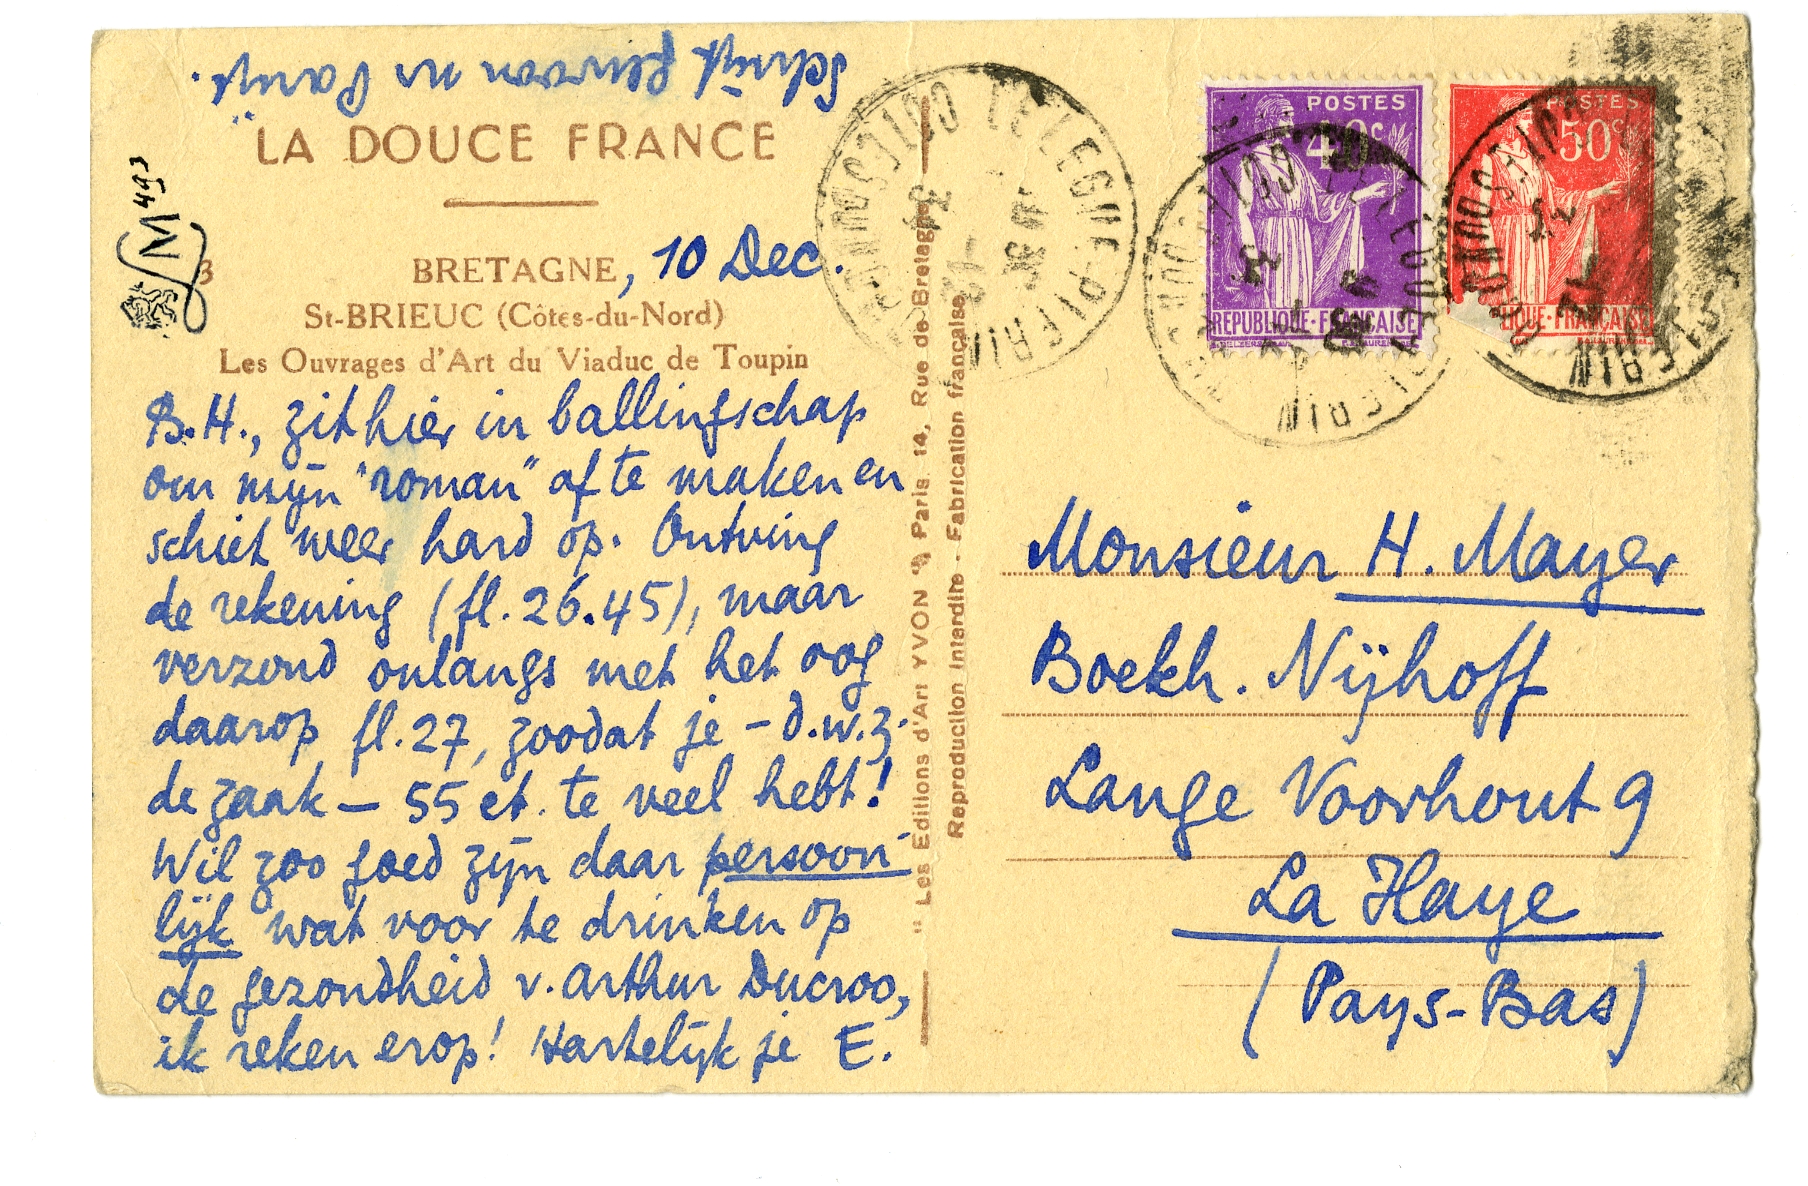 Schrijf gewoon nr Parijs.
"LA DOUCE FRANCE
M 493
3
BRETAGNE, 10 Dec.
St-BRIEUC (Côtes-du-Nord)
Les Ouvrages d'Art du Viaduc de Toupin
B.H., zit hier in ballingschap
om mijn "roman" af te maken en
schiet weer hard op. Ontving
de rekening (fl. 26.45), maar
verzond onlangs met het oog
daarop fl. 27, zoodat je – d.w.z.
de zaak – 55 ct. te veel hebt!
Wil zoo goed zijn daar persoon-
lijk wat voor te drinken op
de gezondheid v. Arthur Ducroo,
ik reken erop! Hartelijk je E.
"Les Editions d'Art YVON" Paris. 14, Rue de Bretagne
Reproduction Interdite - Fabrication française
PLERIN
CÔTES-DU-NORD
POSTES
40c
REPUBLIQUE-FRANÇAISE
POSTES
50c
LIQUE-FRANÇAISE
Monsieur H. Mayer
Boekh. Nijhoff
Lange Voorhout 9
La Haye
(Pays-Bas)